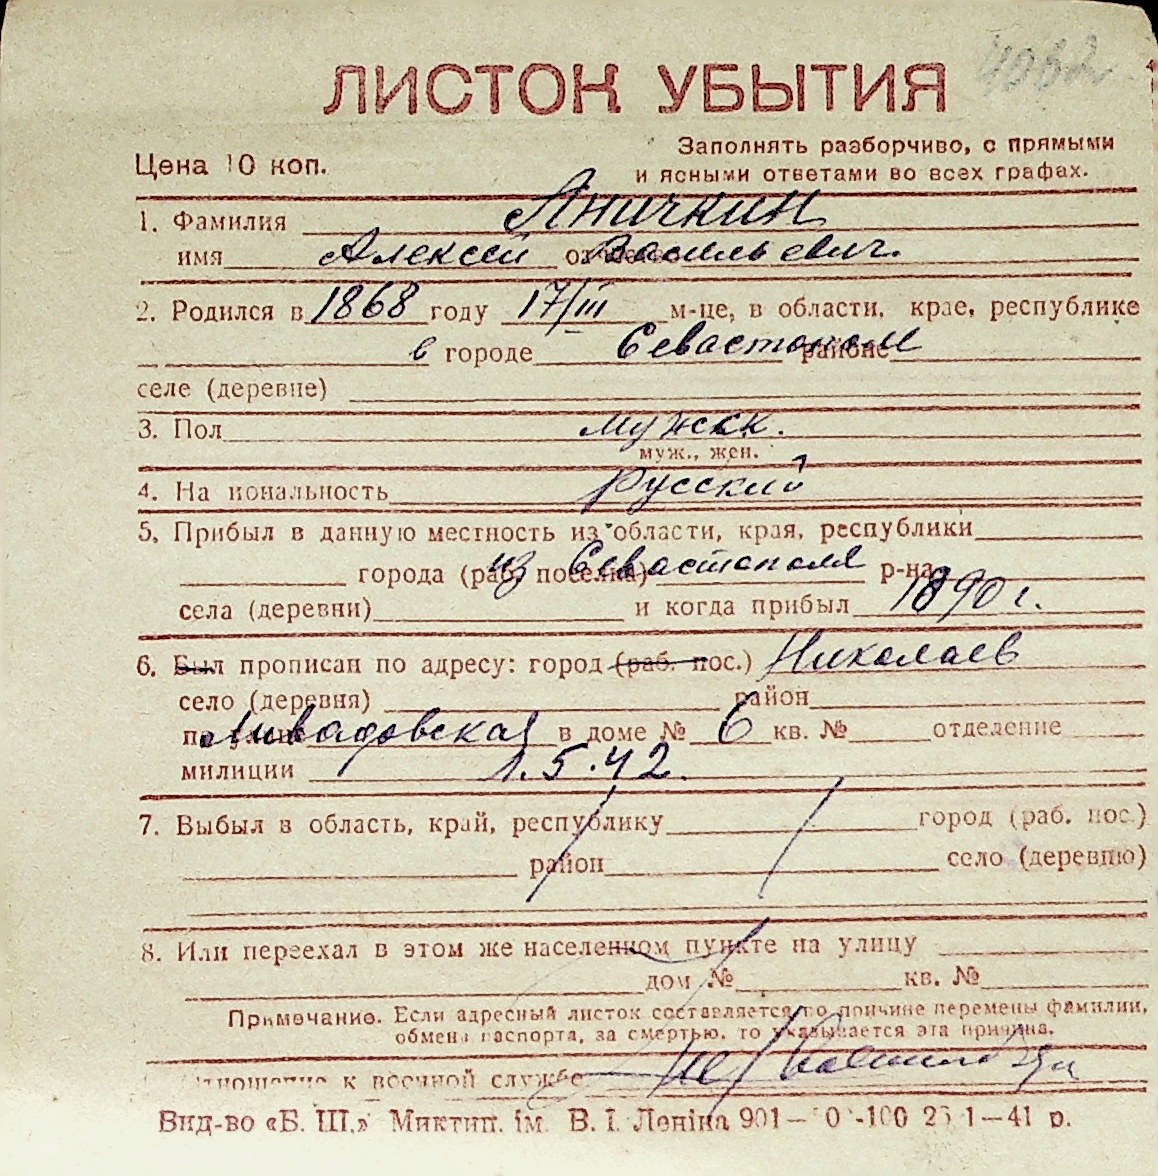 ЛИСТОК УБЫТИЯ
Цена 10 коп.
Заполнять разборчиво, с прямыми
и ясными ответами во всех графах.
1. Фамилия Аничкин
имя Алексей Васильевич.
2. Родился в 1868 году 17/III м-це, в области, крае, республике
в городе Севастополе районе
селе (деревне)
3. Пол мужск.
муж., жен.
4. На иональность русский
5. Прибыл в данную местность из области, края, республики
города (раб. поселка) из Севастополя р-на
села (деревни) и когда прибыл 1890 г.
6. Был прописан по адресу: город (раб. пос.) Николаев
село (деревня) район
по Ливадовская в доме № 6 кв. № отделение
милиции 1.5.42.
7. Выбыл в область, край, республику город (раб. пос.)
район село (деревню)
8. Или переехал в этом же населенном пункте на улицу
дом № кв. №
Примечание. Если адресный листок составляется по причине перемены фамилии,
обмена паспорта, за смертью, то указывается эта причина.
Отношение к военной службе
Вид-во «Б. Ш.» Миктип. ім. В. І. Леніна 901— 0 -100 1—41 р.